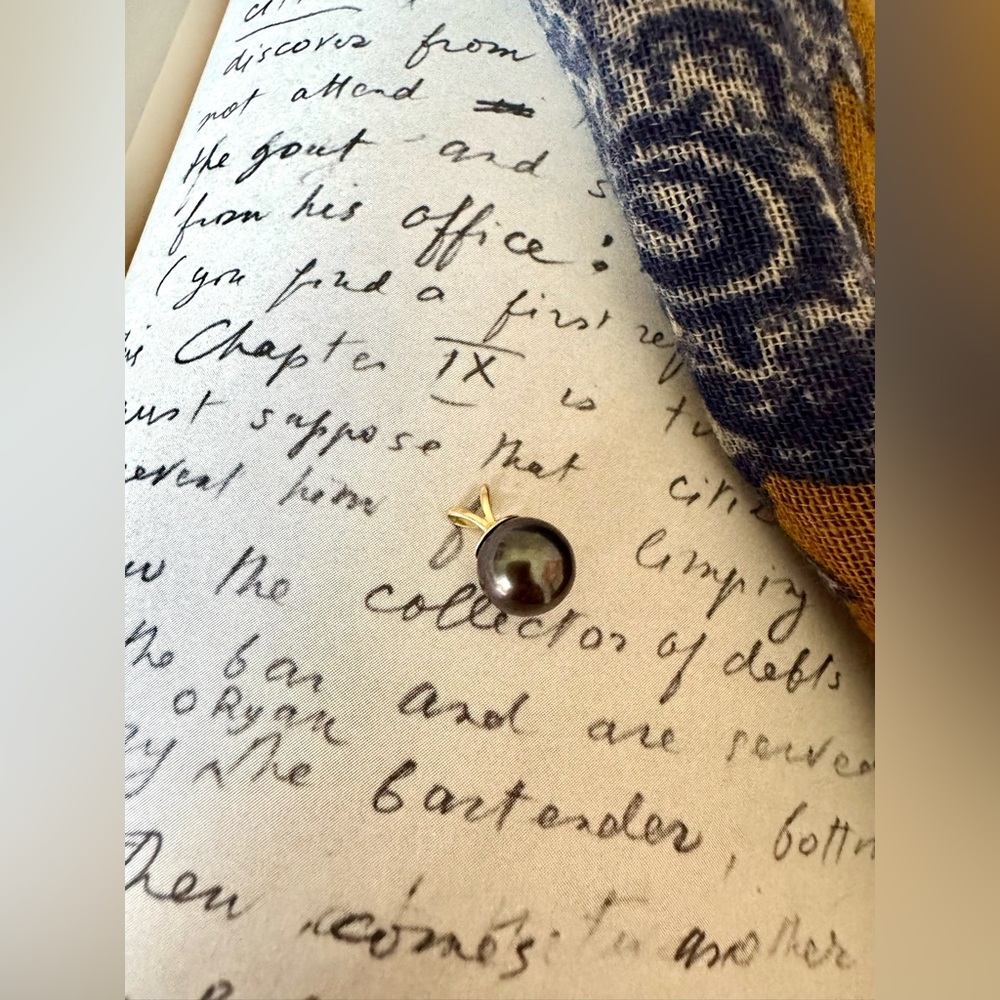 discover from
not attend
the gout and s
from his office:
(you find a first ref
is Chapter IX is
ust suppose that citiz
eveal him limping
w the collector of debts
the bar and are served
oRyan
by the bartender, bottr
Then comes to another